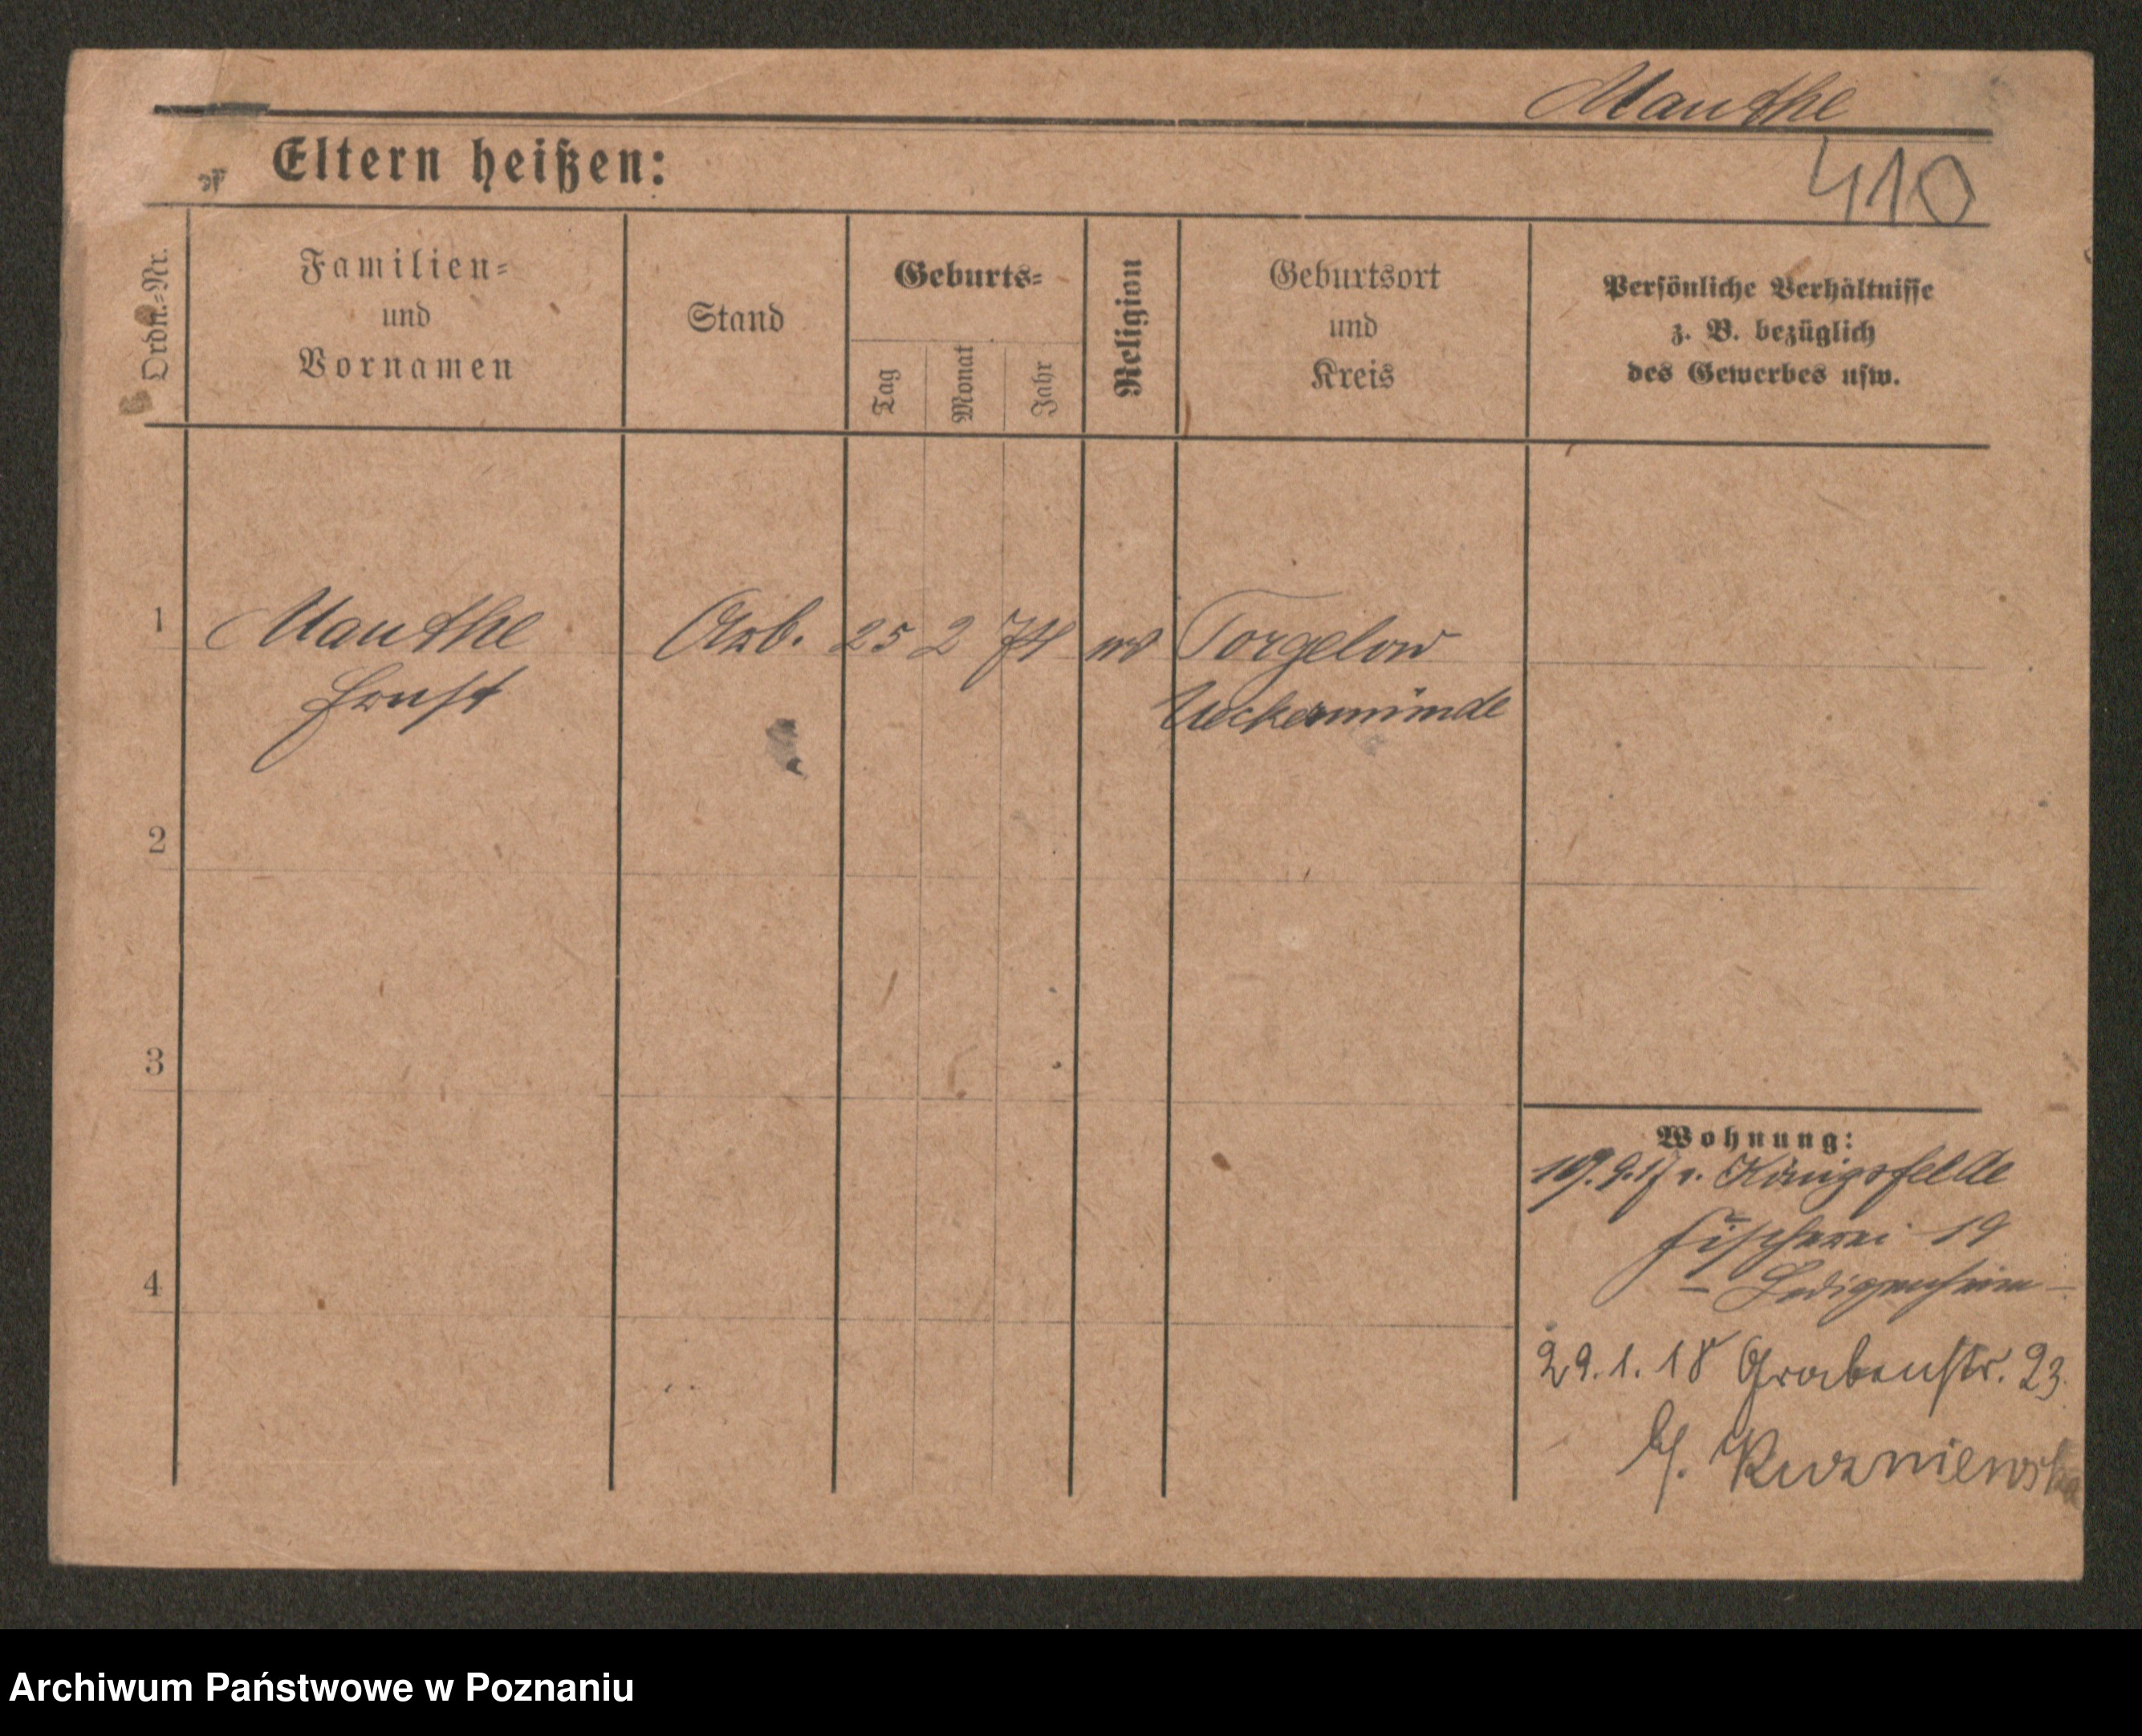 Manthe
410
Eltern heißen:
Ordn.-Nr.
Familien-
und
Vornamen
Stand
Geburts-
Tag
Monat
Jahr
Religion
Geburtsort
und
Kreis
Persönliche Verhältnisse
z. B. bezüglich
des Gewerbes usw.
1 Manthe Arb. 25 2 74 Torgelow
Ernst Ueckermünde
2
3
4
Wohnung:
9.17 v. Königsfelde
Fischerei 19
– Ledigenheim –
29.1.18 Grabenstr. 23.
b/. Kuzniewska
Archiwum Państwowe w Poznaniu